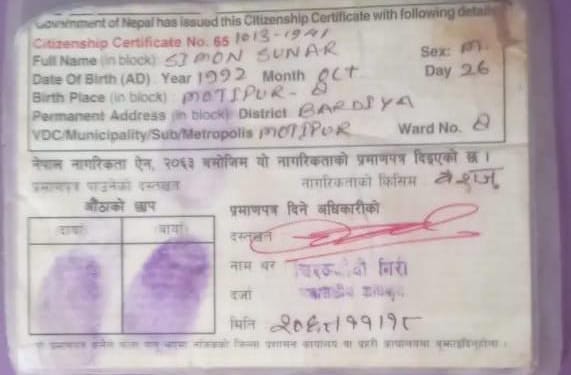 Government of Nepal has issued this Citizenship Certificate with following details
Citizenship Certificate No. 65 1013-1941
Full Name (in block) SIMON SUNAR Sex: M.
Date Of Birth (AD) : Year 1992 Month OCT Day 26
Birth Place (in block) : MOTIPUR - 8
Permanent Address (in block) District BARDIYA
VDC/Municipality/Sub/Metropolis MOTIPUR Ward No. 8
नेपाल नागरिकता ऐन, २०६३ बमोजिम यो नागरिकताको प्रमाणपत्र दिइएको छ ।
प्रमाणपत्र पाउनेको दस्तखत नागरिकताको किसिम वंशज
औंठाको छाप प्रमाणपत्र दिने अधिकारीको
दायाँ बायाँ दस्तखत
नाम थर गिरी
दर्जा
मिति